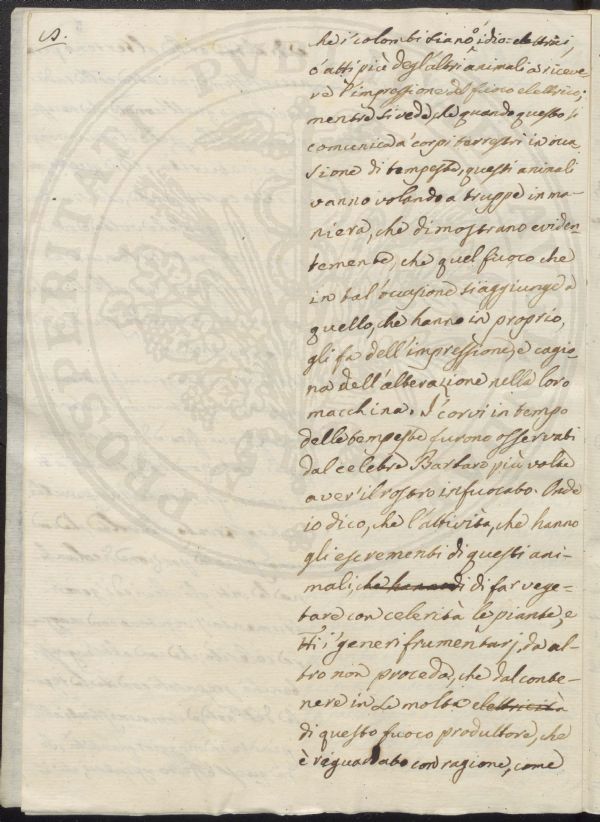 che i colombi siano o idio-elettrici,
o atti più degl'altri animali a riceve-
re l'impressione del fuoco elettrico;
mentre si vede, che quando questo si
comunica a' corpi terrestri in occa-
sione di tempeste, questi animali
vanno volando a truppe in ma-
niera, che dimostrano eviden-
temente, che quel fuoco che
in tal'occasione si aggiunge a
quello, che hanno in proprio,
gli fà dell'impressione, e cagio-
na dell'alterazione nella loro
macchina. I corvi in tempo
delle tempeste furono osservati
dal celebre Barbaro più volte
aver il rostro infuocato. Onde
io dico, che l'attività, che hanno
gli escrementi di questi ani-
mali, che hanno di di far vege-
tare con celerità le piante, e
tti i generi frumentarj, da al-
tro non proceda, che dal conte-
nere in se molta elettricità
di questo fuoco produttore, che
è riguardato con ragione, come
PROSPERITATI PVB